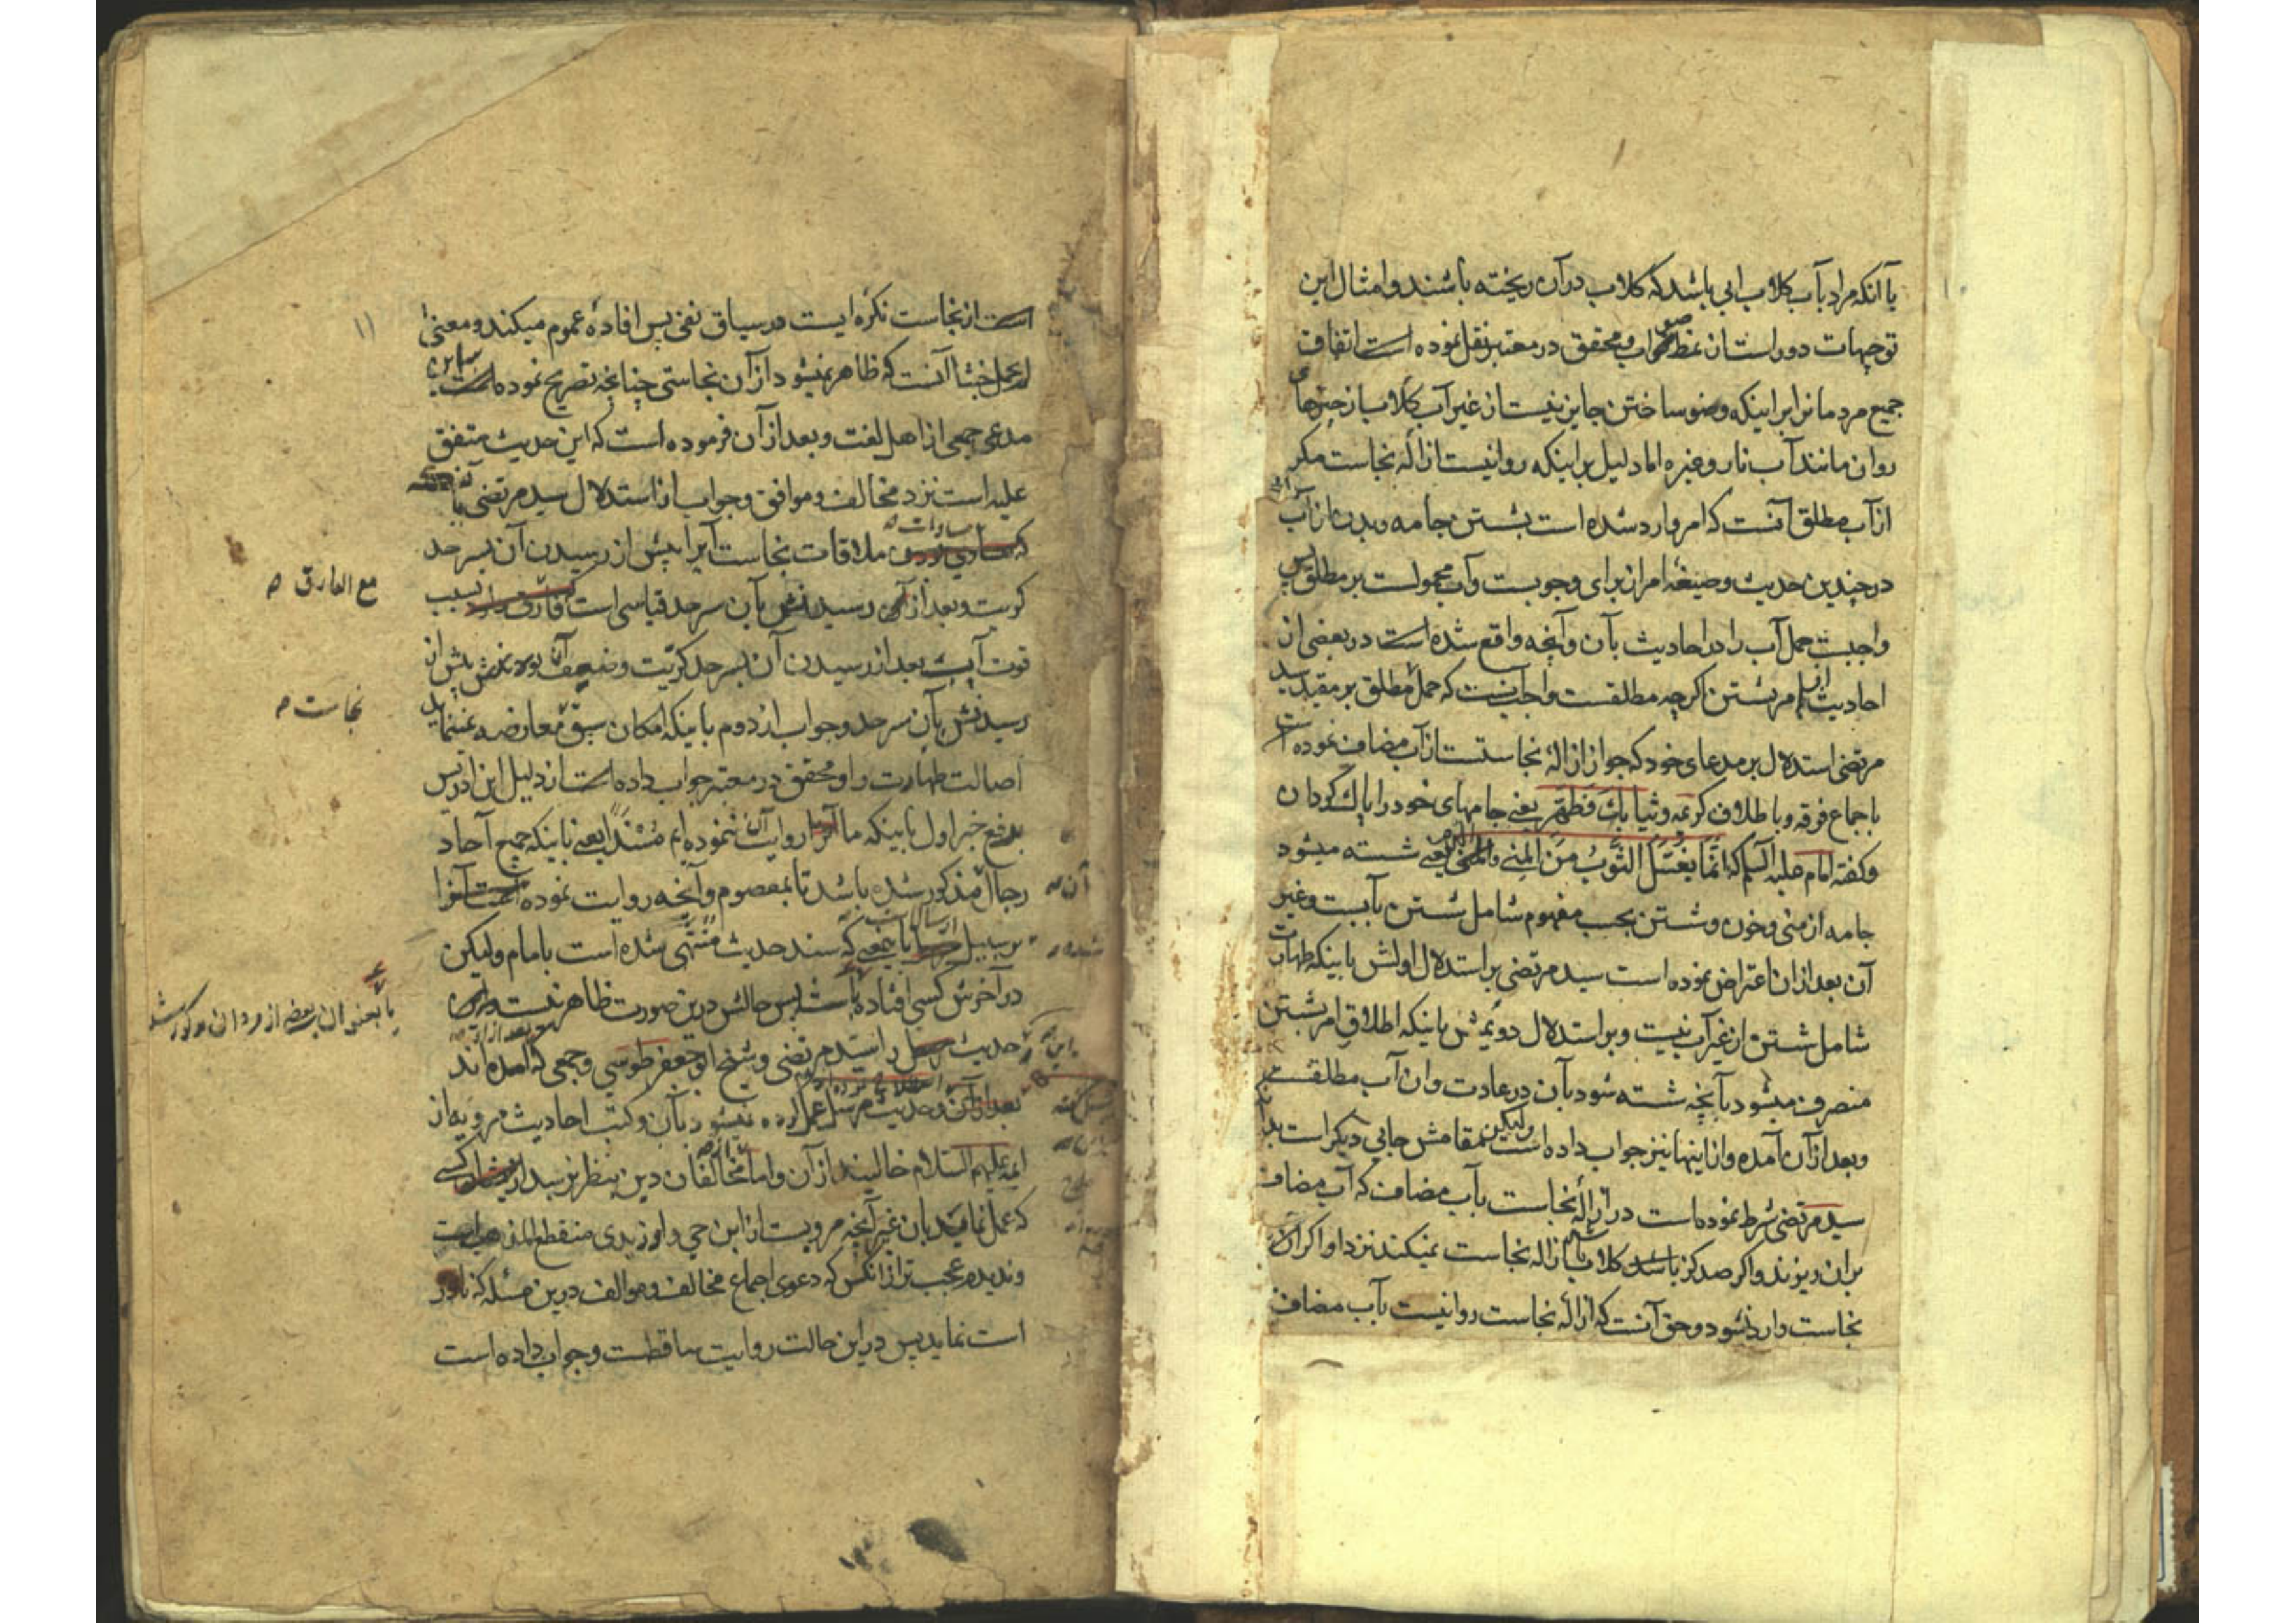 یا آنکه مراد بآب کلاب ابی باشد که کلاب در آن ریخته باشند و امثال این
توجیهات دور است از نظر صواب و محقق در معتبر نقل نموده است اتفاق
جمیع مردمانرا بر اینکه وضو ساختن جایز نیست از غیر آب کلاب از چیزهای
روان مانند آب نار و غیره اما دلیل بر اینکه روا نیست ازالهٔ نجاست مکر
از آب مطلق آنست که امر وارد شده است بشستن جامه و بدن از آب
در چندین حدیث و صیغهٔ امر از برای وجوبست و آب محمولست بر مطلق پس
واجبست حمل آب را در احادیث بآن و آنچه واقع شده است در بعضی از
احادیث از امر بشستن اکرچه مطلقست واجب آنست که حمل مطلق بر مقید سید
مرتضی استدلال بر مدعای خود که جواز ازالهٔ نجاستست از آب مضاف نموده است
باجماع فرقه و باطلاق کریمه وثیابک فطهر یعنی جامهای خود را پاک کردان
و کفته امام علیه السلم که انما یغسل الثوب من المنی والدم یعنی شسته میشود
جامه از منی و خون و شستن بحسب مفهوم شامل شستن بآبست و غیر
آن بعد از ان اعتراض نموده است سید مرتضی بر استدلال اولش باینکه طهارت
شامل شستن از غیر آب نیست و بر استدلال دویمش باینکه اطلاق امر بشستن
منصرف میشود بآنچه شسته شود بآن در عادت و ان آب مطلقست
و بعد از آن آمده و از اینها نیز جواب داده است ولیکن مقامش جایی دیکر است
سید مرتضی شرط نموده است در ازالهٔ نجاست بآب مضاف که آب مضاف
بران ریزند و اکر صد کز باشد کلاب ازاله نجاست نمیکند نزد او اکر آن
نجاست وارد شود و حق آنست که ازالهٔ نجاست روا نیست بآب مضاف
۱۱
است از نجاست نکره ایست در سیاق نفی پس افادهٔ عموم میکند و معنی
لم یحمل خبثا آنست که ظاهر نمیشود از آن نجاستی چنانچه تصریح نموده است باین
مدعی جمعی از اهل لغت و بعد از آن فرموده است که این حدیث متفق
علیه است نزد مخالف و موافق و جواب از استدلال سید مرتضی
مساوات ملاقات نجاست آبرا پیش از رسیدن آن بسر حد
کریت و بعد از رسیدنش بآن سرحد قیاسی است بسبب
مع الفارق
قوت آب بعد از رسیدن آن بسر حد کریت و ضعف آن پیش از
رسیدنش بآن سرحد و جواب از دوم باینکه امکان سبق معارضه نمینماید
نجاست
اصالت طهارت را و محقق در معتبر جواب داده است از دلیل ابن ادریس
بدفع خبر اول باینکه ما آنرا روایت ننموده ایم مسندا یعنی باینکه جمیع آحاد
رجال مذکور شده باشد تا بمعصوم و آنچه روایت نموده آنرا
بر سبیل ارسالست یعنی که سند حدیث منتهی شده است بامام ولیکن
در آخرش کسی افتاده پس حالش درین صورت ظاهر نیست
حدیث را سید مرتضی و شیخ ابو جعفر طوسی و جمعی که آمده اند
حدیث مرسل عمل کرده نمیشود بآن و کتب احادیث مرویه از
ایمه علیهم السلام خالیند از آن و اما مخالفان دین بنظر نرسید کسی
که عمل نماید بان غیر آنچه مرویست از ابن حی و او زیدی منقطع المذهب است
و ندیدم عجب تر از انکس که دعوی اجماع مخالف و موالف درین مسئله که نادر
است نماید پس در این حالت روایت ساقطست و جواب داده است